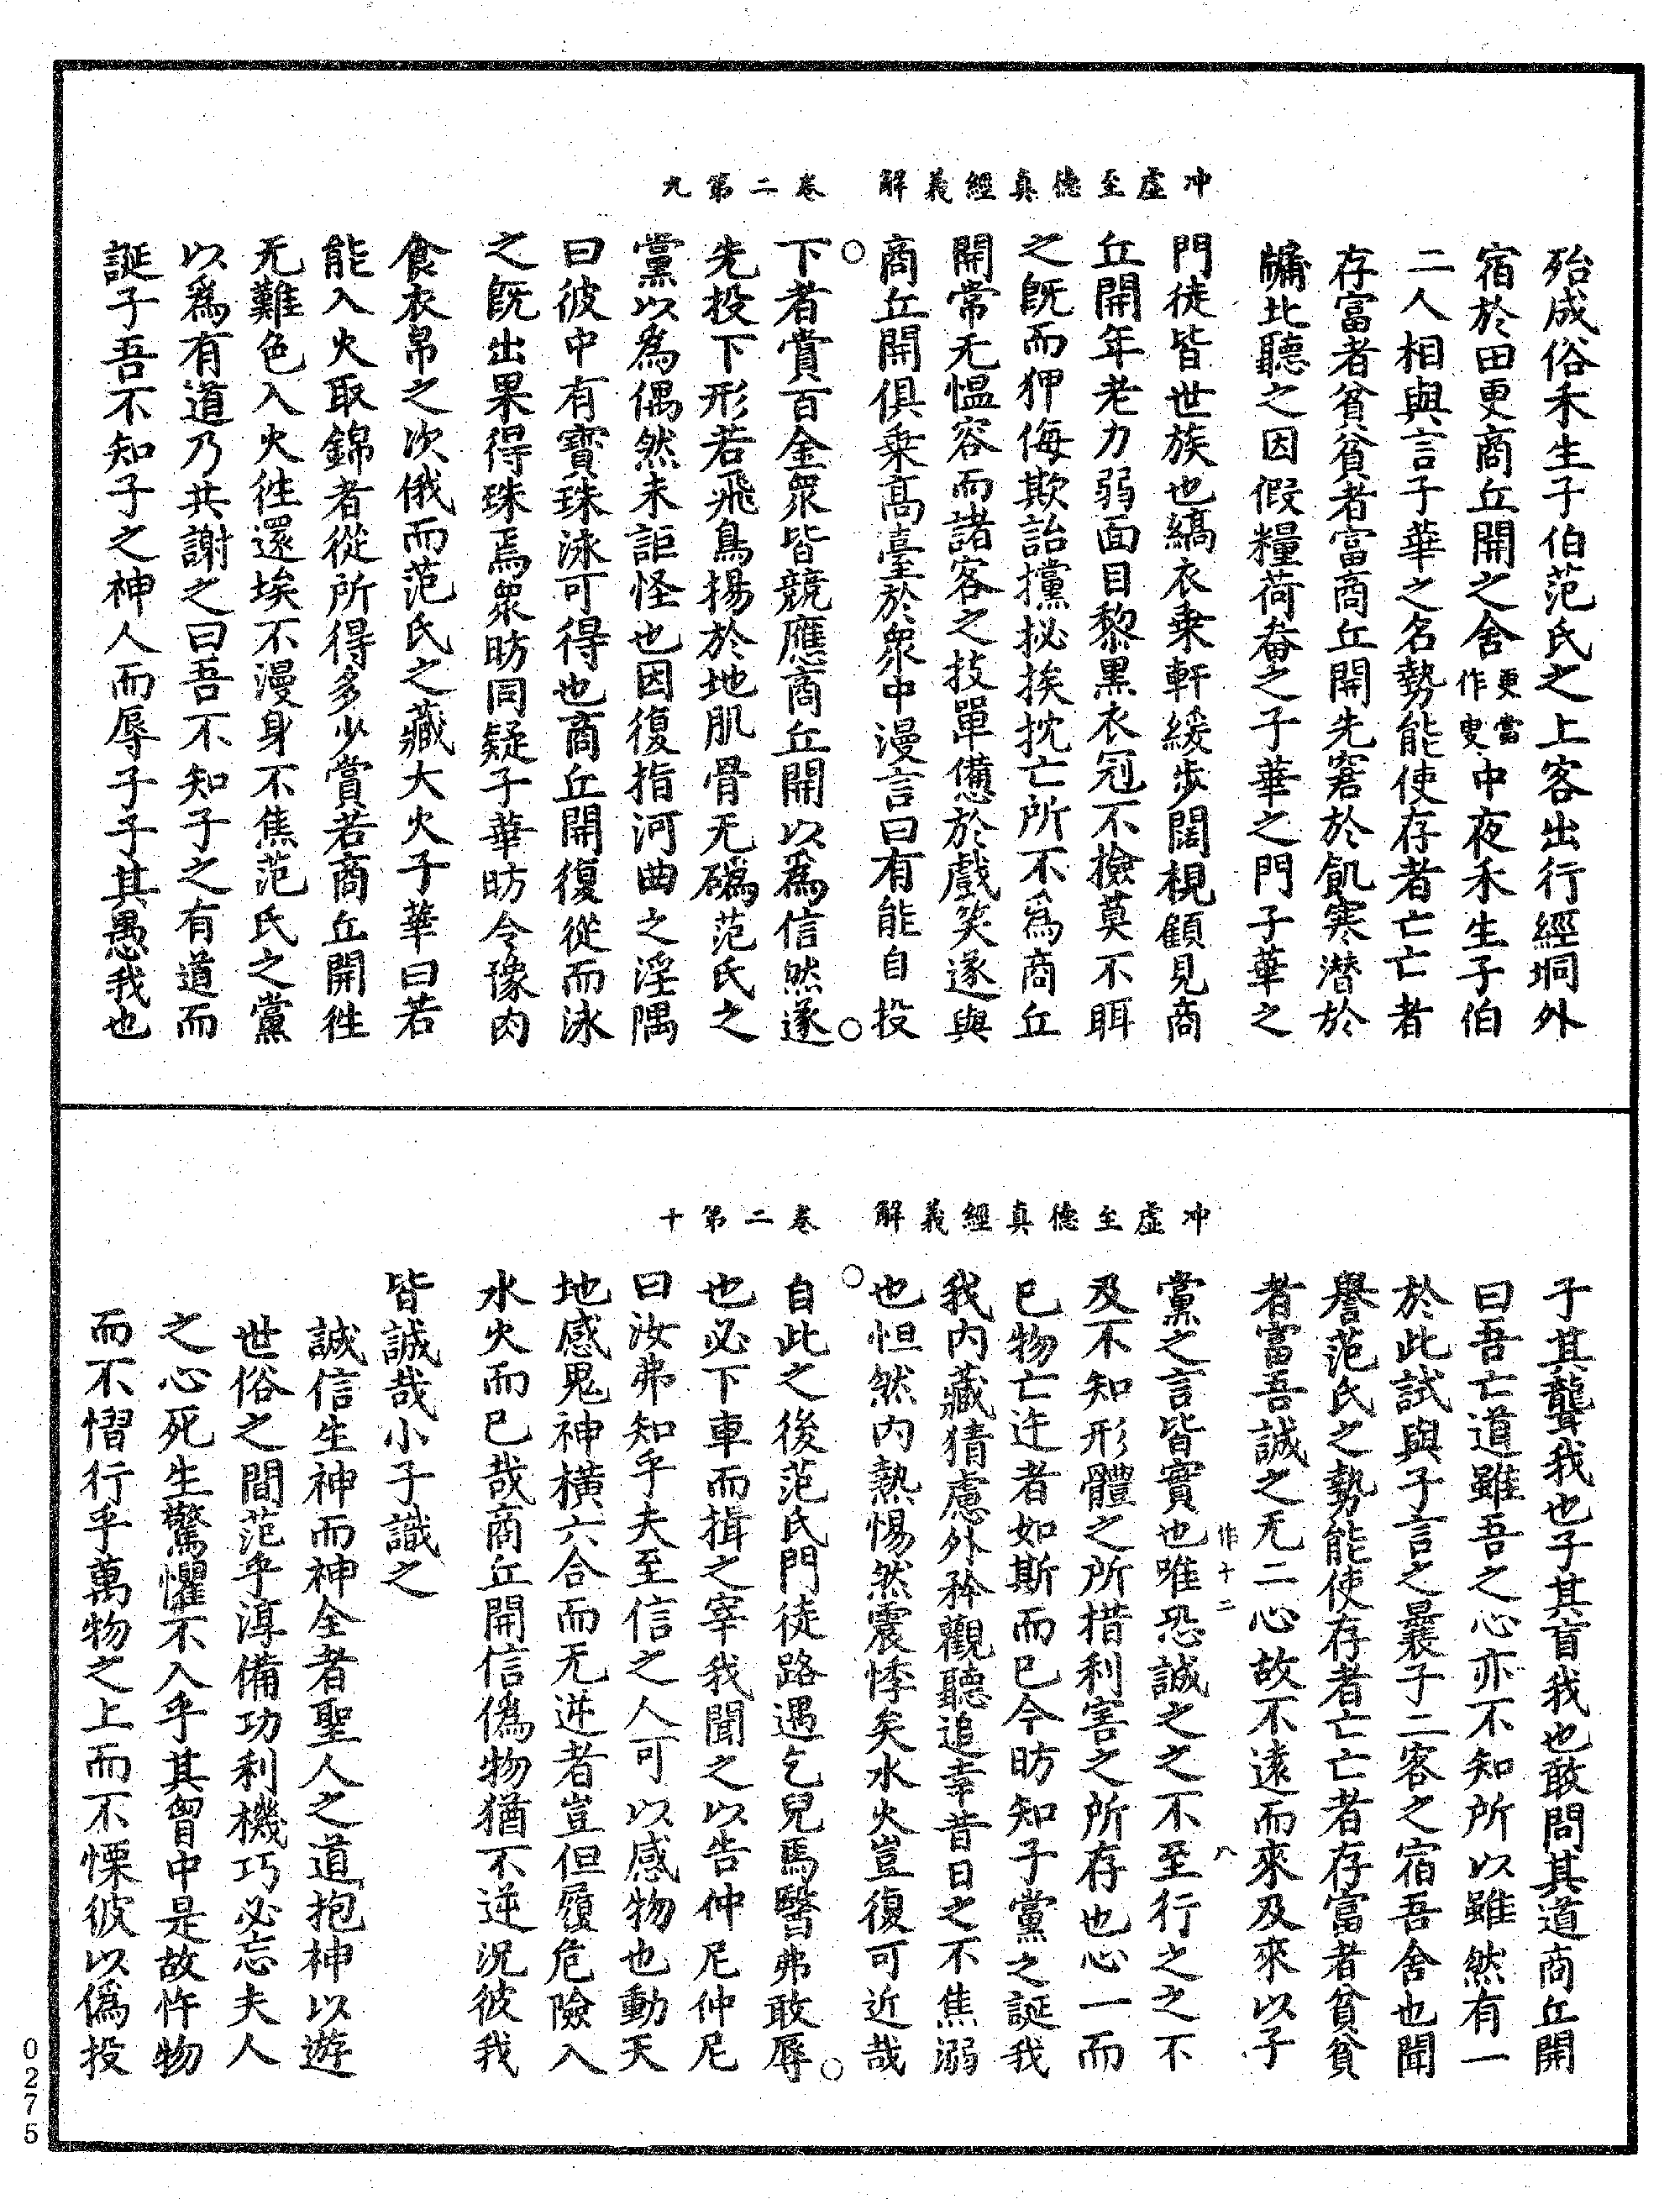 冲虛至德真經義解　卷二第九
殆成俗禾生子伯范氏之上客出行經坰外
宿於田更商丘開之舍更當作叟中夜禾生子伯
二人相與言子華之名勢能使存者亡亡者
存富者貧貧者富商丘開先窘於飢寒潜於
牖北聽之因假糧荷畚之子華之門子華之
門徒皆世族也縞衣乗軒緩步闊視顧見商
丘開年老力弱面目黎黑衣冠不撿莫不眲
之旣而狎侮欺詒攩㧙挨抌亡所不爲商丘
開常无愠容而諸客之技單憊於戲笑遂與
商丘開俱乗髙臺於衆中漫言曰有能自投
下者賞百金衆皆競應商丘開以爲信然遂
先投下形若飛鳥揚於地肌骨无䃣范氏之
黨以為偶然未詎怪也因復指河曲之淫隅
曰彼中有寳珠泳可得也商丘開復從而泳
之旣出果得珠焉衆昉同疑子華昉令豫肉
食衣帛之次俄而范氏之藏大火子華曰若
能入火取錦者從所得多少賞若商丘開徃
无難色入火徃還埃不漫身不焦范氏之黨
以爲有道乃共謝之曰吾不知子之有道而
誕子吾不知子之神人而辱子子其愚我也
冲虛至德真經義解　卷二第十
子其聾我也子其盲我也敢問其道商丘開
曰吾亡道雖吾之心亦不知所以雖然有一
於此試與子言之曩子二客之宿吾舍也聞
譽范氏之勢能使存者亡亡者存富者貧貧
者富吾誠之无二心故不遠而來及來以子
作十二　八
黨之言皆實也唯恐誠之之不至行之之不
及不知形體之所措利害之所存也心一而
已物亡迕者如斯而已今昉知子黨之誕我
我内藏猜慮外矜觀聽追幸昔日之不焦溺
也怛然内熱惕然震悸矣水火豈復可近哉
自此之後范氏門徒路遇乞兒馬醫弗敢辱
也必下車而揖之宰我聞之以告仲尼仲尼
曰汝弗知乎夫至信之人可以感物也動天
地感鬼神橫六合而无逆者豈但履危險入
水火而已哉商丘開信僞物猶不逆況彼我
皆誠哉小子識之
誠信生神而神全者聖人之道抱神以遊
世俗之間范乎淳備功利機巧必忘夫人
之心死生驚懼不入乎其胷中是故忤物
而不慴行乎萬物之上而不慄彼以僞投
0275